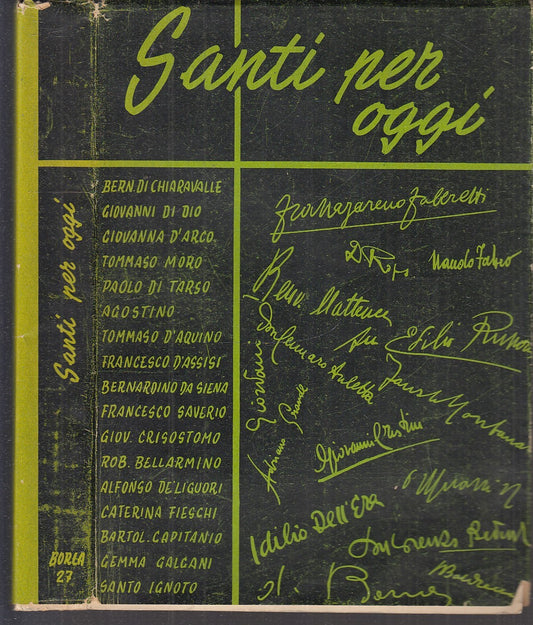 Santi per
oggi
Santi per oggi
BORLA
27
BERN. DI CHIARAVALLE
GIOVANNI DI DIO
GIOVANNA D'ARCO
TOMMASO MORO
PAOLO DI TARSO
AGOSTINO
TOMMASO D'AQUINO
FRANCESCO D'ASSISI
BERNARDINO DA SIENA
FRANCESCO SAVERIO
GIOV. CRISOSTOMO
ROB. BELLARMINO
ALFONSO DE'LIGUORI
CATERINA FIESCHI
BARTOL. CAPITANIO
GEMMA GALGANI
SANTO IGNOTO
fra Nazareno Fabbretti
Nando Fabro
Benv. Matteucci
don Gennaro Auletta
Fausto Montanari
Adriano Grande
Giovanni Cristini
Idilio Dell'Era